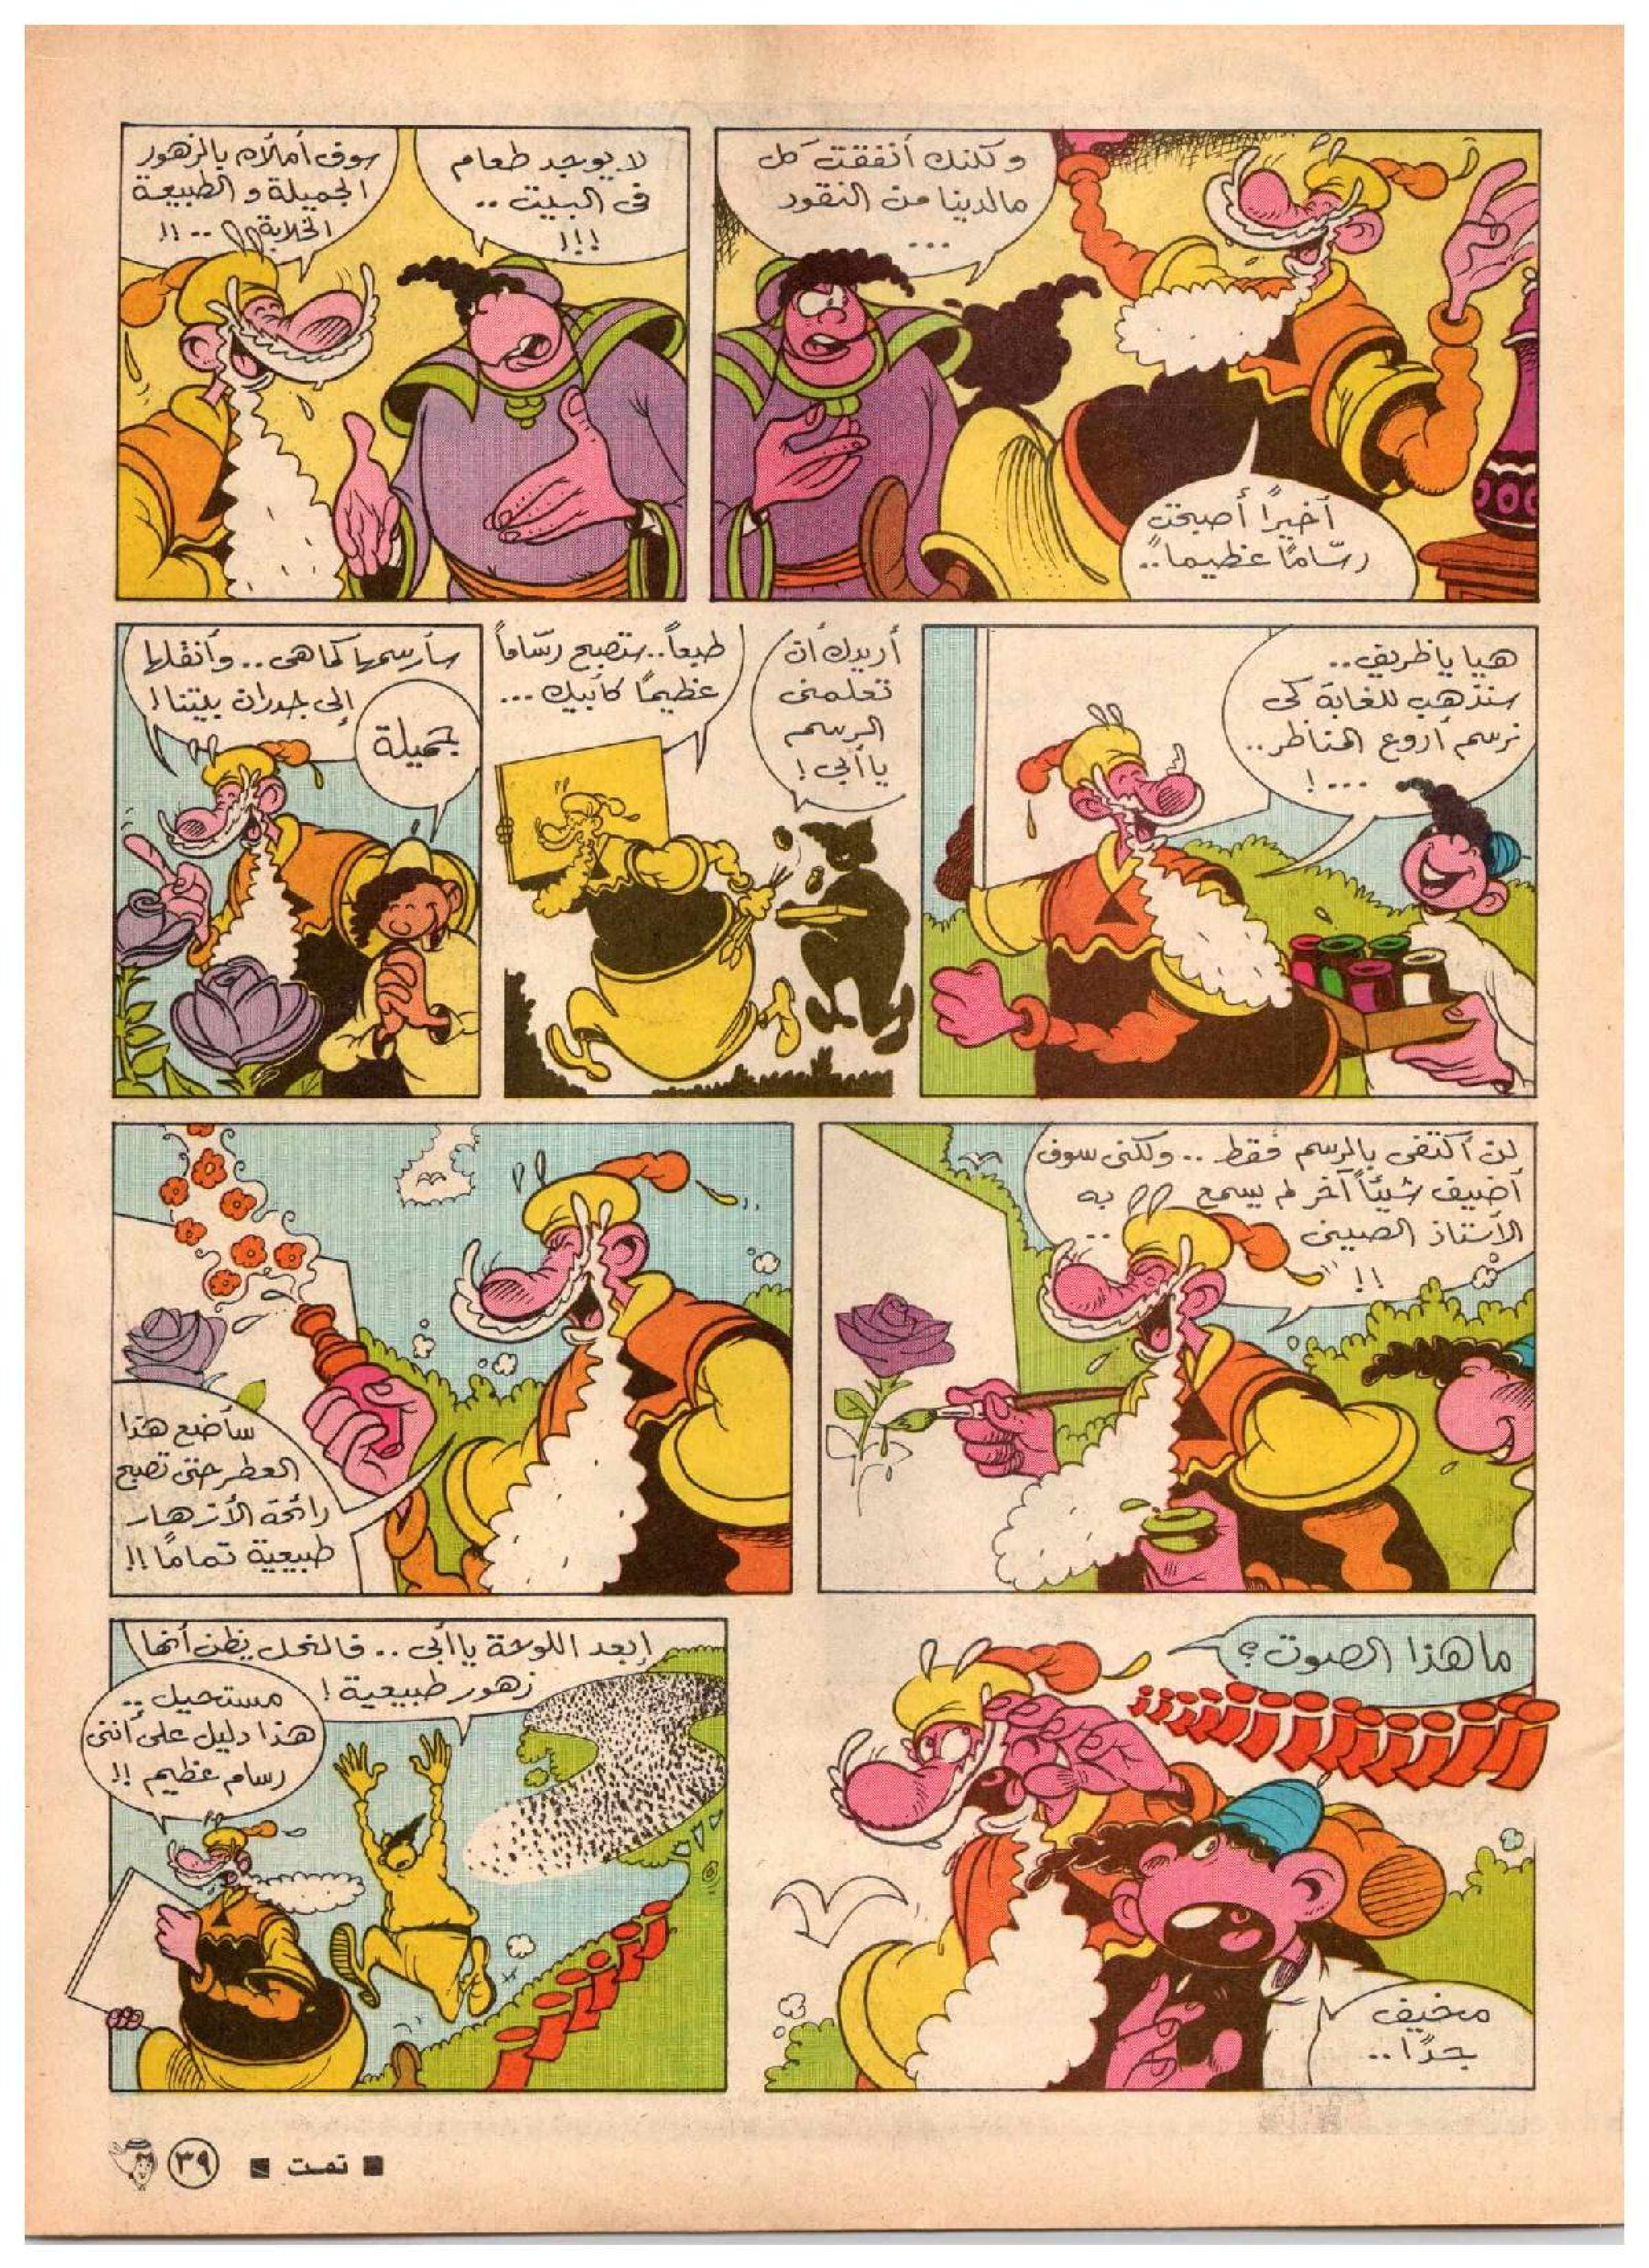 ولكنك أنفقت كل
مالدينا من النقود
...
أخيراً أصبحت
رسّاماً عظيماً..
لا يوجد طعام
فى البيت ..
!!!
سوف أملأه بالزهور
الجميلة و الطبيعة
الخلابة .. !!
هيا يا ظريف..
سنذهب للغابة لكى
نرسم أروع المناظر..
... !
أريدك أن
تعلمنى
الرسم
يا أبى !
طبعاً.. ستصبح رسّاماً
عظيماً كأبيك ...
سأرسمها كما هى .. وأنقلها
إلى جدران بيتنا !
جميلة
لن أكتفى بالرسم فقط .. ولكنى سوف
أضيف شيئاً آخر لم يسمع به
الأستاذ الصينى ..
!!
سأضع هذا
العطر حتى تصبح
رائحة الأزهار
طبيعية تماماً !!
ما هذا الصوت ؟
ززززززززززز
مخيف
جداً ..
إبعد اللوحة يا أبى .. فالنحل يظن أنها
زهور طبيعية !
مستحيل ..
هذا دليل على أننى
رسام عظيم !!
■ تمت ■
٣٩